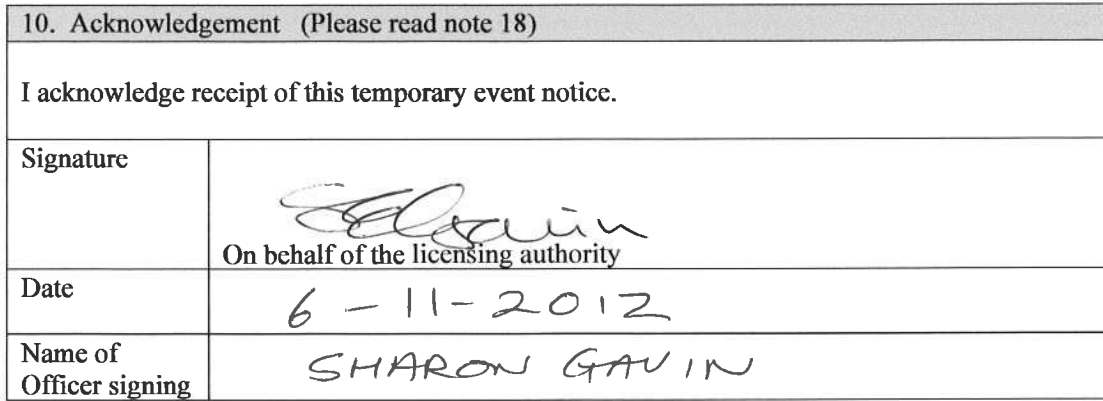 10. Acknowledgement (Please read note 18)
I acknowledge receipt of this temporary event notice.
Signature
On behalf of the licensing authority
Date
6 - 11 - 2012
Name of
Officer signing
SHARON GAVIN